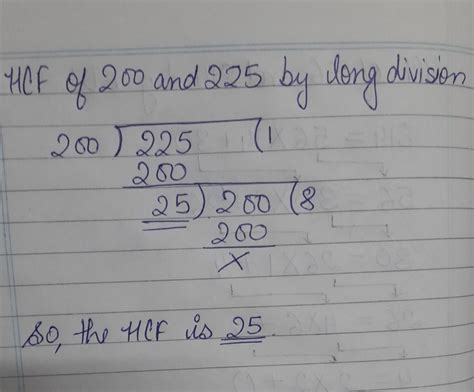 HCF of 200 and 225 by long division
200 ) 225 ( 1
200
25 ) 200 ( 8
200
x
So, the HCF is 25.